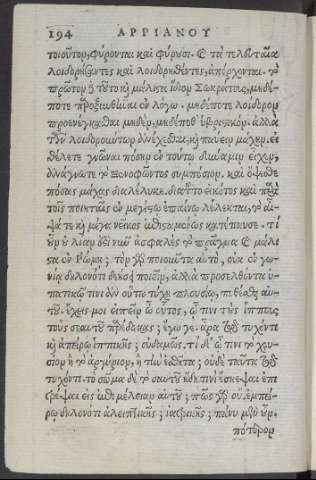 194 ΑΡΡΙΑΝΟΥ
τοιοῦτον, φύρονται καὶ φύρουσι. καὶ τὰ τελευταῖα
λοιδορήσαντες καὶ λοιδορηθέντες, ἀπέρχονται. τὸ
πρῶτον δὲ τοῦτο καὶ μάλιστα ἴδιον Σωκράτους, μηδέ-
ποτε παροξυνθῆναι ἐν λόγῳ. μηδέποτε λοίδορον
προενέγκασθαι μηδὲν, μηδέποθ' ὑβριστικόν. ἀλλὰ
τῶν λοιδορούντων ἀνέχεσθαι, καὶ παύειν μάχην. εἰ
θέλετε γνῶναι πόσην ἐν τούτῳ δύναμιν εἶχεν,
ἀνάγνωτε τὸ Ξενοφῶντος συμπόσιον. καὶ ὄψεσθε
πόσας μάχας διαλέλυκε. διὰ τοῦτο εἰκότως καὶ παρὰ
τοῖς ποιηταῖς ἐν μεγίστῳ ἐπαίνῳ λέλεκται, τὸ αἶ-
ψά τε καὶ μέγα νεῖκος ἐπισταμένως κατέπαυσε. τί
οὖν; οὐ λίαν ἐστὶ νῦν ἀσφαλὲς τὸ πρᾶγμα καὶ μάλι-
στα ἐν Ῥώμῃ; τὸν γὰρ ποιοῦντα αὐτὸ, οὐκ ἐν γω-
νίᾳ δηλονότι δεήσῃ ποιεῖν, ἀλλὰ προσελθόντα ὑ-
πατικῷ τινι ἂν οὕτω τύχῃ πλουσίῳ, πυθέσθαι αὐ-
τοῦ. ἔχεις μοι εἰπεῖν ὦ οὗτος, ᾧ τινι τοὺς ἵππους
τοὺς σεαυτοῦ παρέδωκας; ἔγωγε. ἆρα τῷ τυχόντι
καὶ ἀπείρῳ ἱππικῆς; οὐδαμῶς. τί δ' ᾧ τινι τὸ χρυ-
σίον ἢ τὸ ἀργύριον, ἢ τὴν ἐσθῆτα; οὐδὲ ταῦτα τῷ
τυχόντι. τὸ σῶμα δὲ τὸ σαυτοῦ ἤδη τινὶ ἔσκεψαι ἐπι
τρέψαι εἰς ἐπιμέλειαν αὐτοῦ; πῶς γὰρ οὔ; ἐμπεί-
ρῳ δηλονότι ἀλειπτικῆς; ἰατρικῆς; πάνυ μὲν οὖν.
πότερον